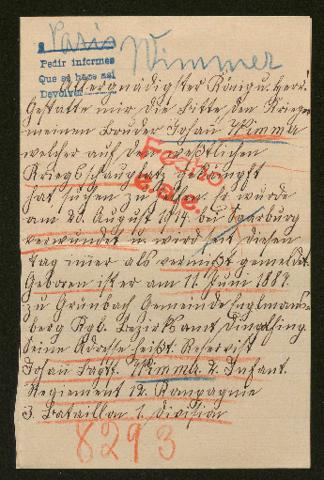 a Paris
Wimmer
Pedir informes
Que se hace así
Devolver
Allergnädigster König u. Herr
Gestatte mir die Bitte den Krieger
meinen Bruder Johan Wimmer
welcher auf den westlichen
Kriegsschauplatz gekämpft
hat suchen zu er wurde
am 20. August 1914. bei Saarburg
verwundet u. wird seit diesen
tag immer als vermißt gemeldet.
Geboren ist er am 11. Juni 1889.
zu Grünbach Gemeinde Englmans-
berg Kgl. Bezirksamt Dingolfing.
Seine Adresse heißt. Reservist
Johan Bapt. Wimmer 2. Infant.
Regiement 12. Kompagnie
3. Bataillon 1. Division
8293